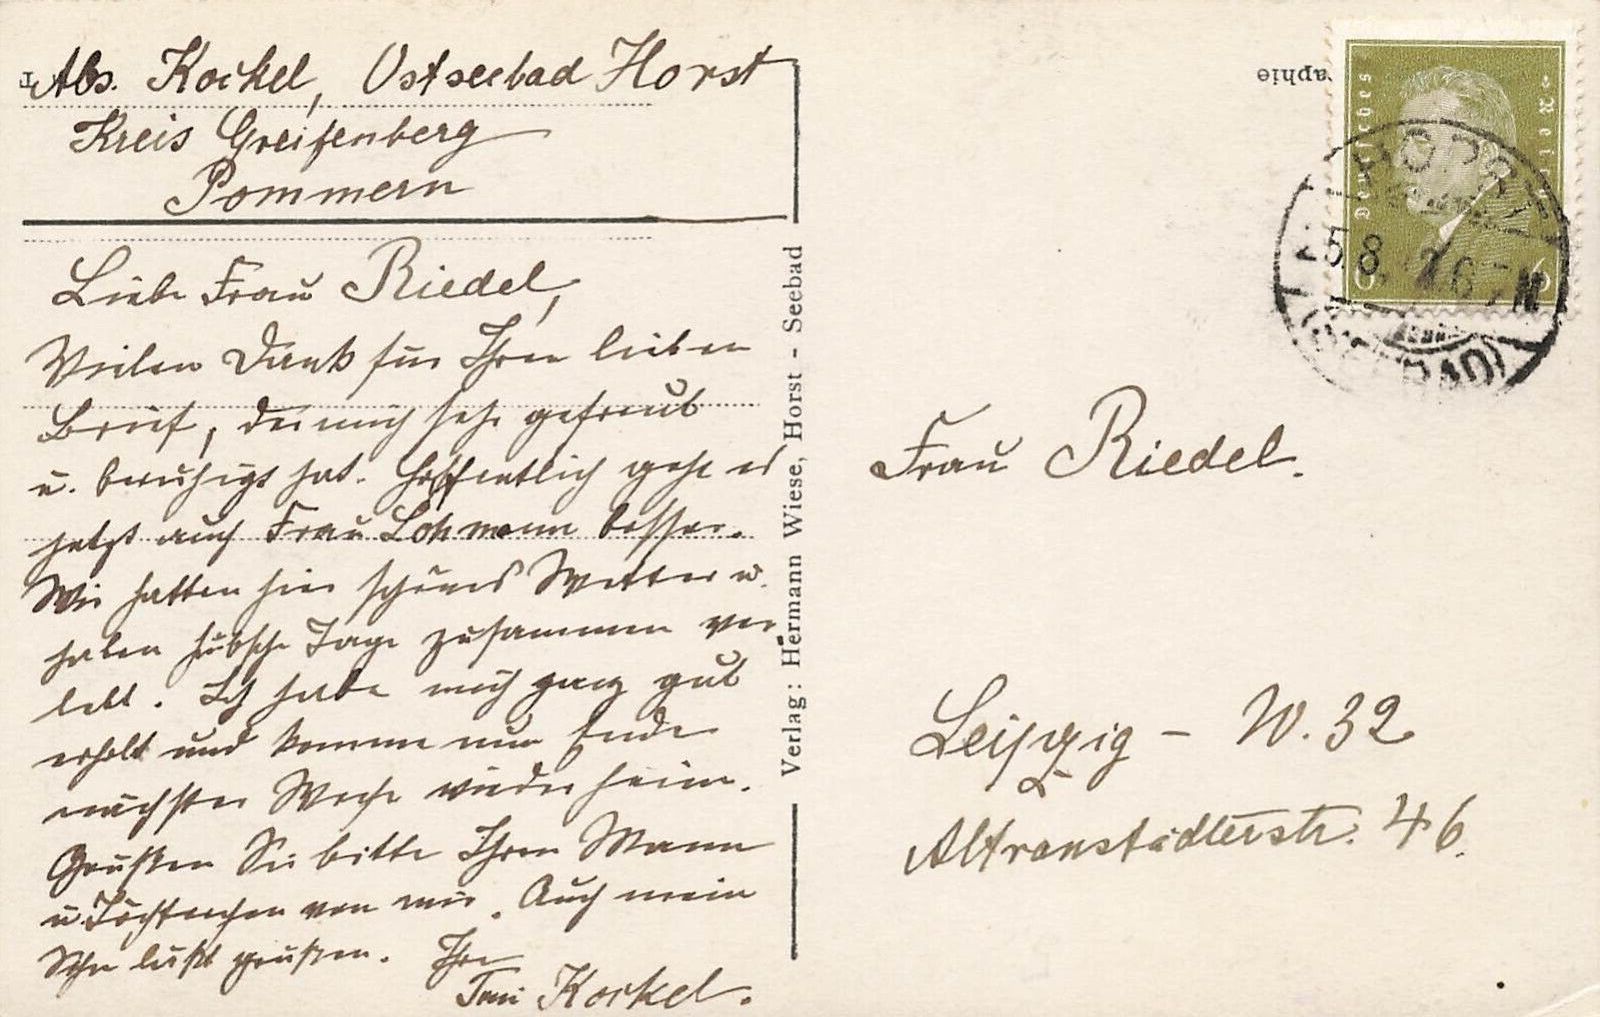 Abs. Kockel, Ostseebad Horst
Kreis Greifenberg
Pommern
Liebe Frau Riedel,
Vielen Dank für Ihren lieben
Brief, der mich sehr gefreut
u. beruhigt hat. Hoffentlich geht es
jetzt auch Frau Lohmann besser.
Wir hatten hier schönes Wetter u.
haben hübsche Tage zusammen ver
lebt. Ich habe mich ganz gut
erholt und komme nun Ende
nächster Woche wieder heim.
Grüßen Sie bitte Ihren Mann
u. Töchterchen von mir. Auch mein
läßt grüßen. Ihre
Kockel.
Verlag: Hermann Wiese, Horst - Seebad
raphie
Deutsches Reich
6 6
HORST
(SEEBAD)
Frau Riedel.
Leipzig - W. 32
Altranstädterstr. 46.